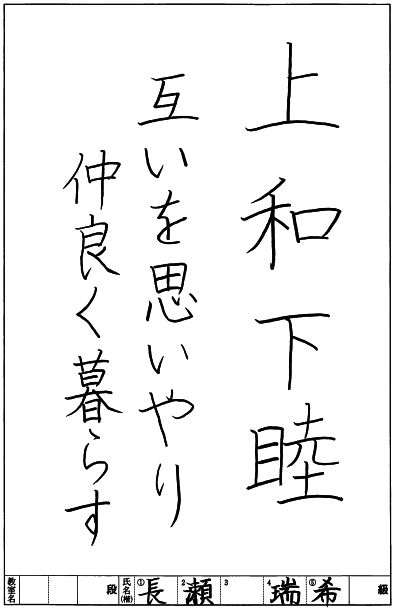 上和下睦
互いを思いやり
仲良く暮らす
級 ⑤希 4瑞 3 2瀬 ①長 氏名(楷) 段 教室名